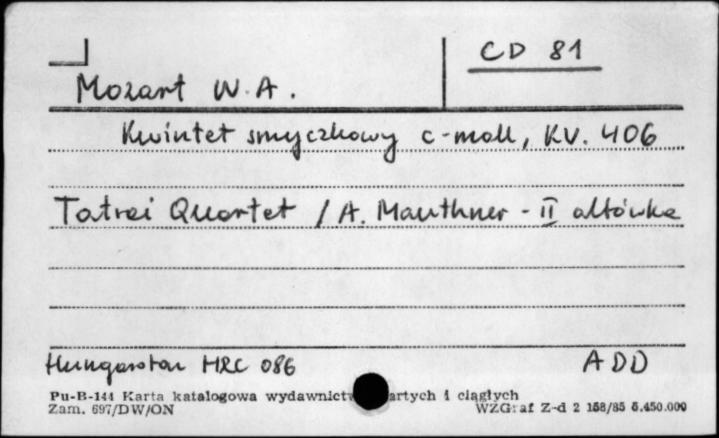 CD 81
Mozart W.A.
Kwintet smyczkowy c-moll, KV. 406
Tatrai Quartet / A. Mauthner - II altówka
Hungaroton HRC 086 ADD
Pu-B-144 Karta katalogowa wydawnictw artych i ciągłych
Zam. 697/DW/ON WZGraf Z-d 2 158/85 5.450.000